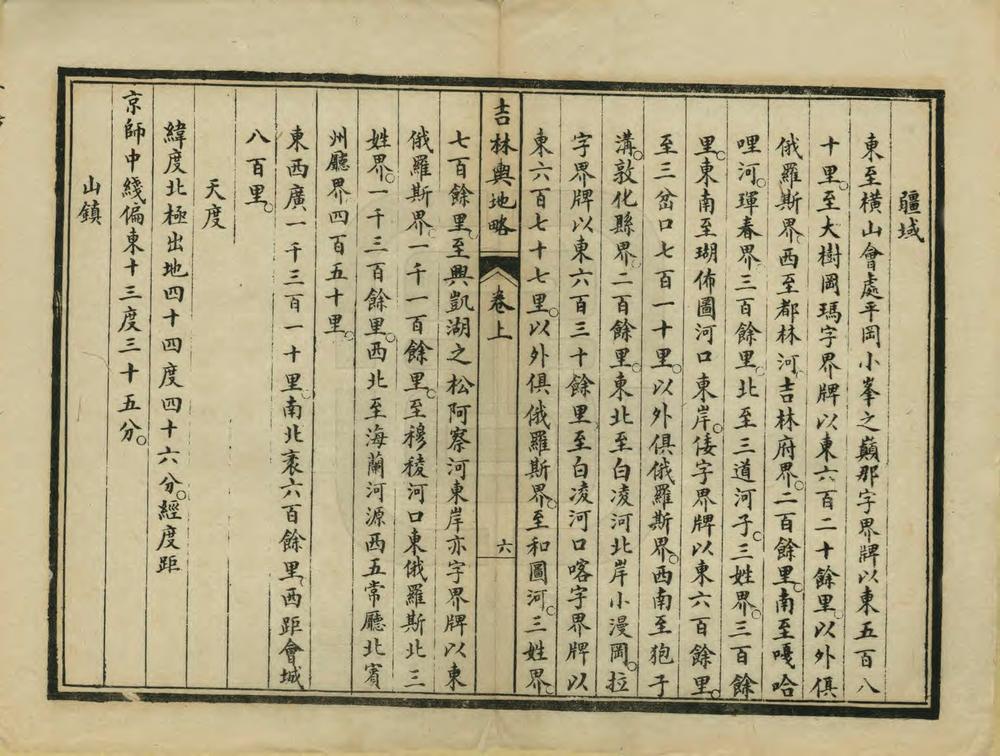 疆域
東至橫山會處平岡小峯之巔那字界牌以東五百八
十里。至大樹岡瑪字界牌以東六百二十餘里。以外俱
俄羅斯界。西至都林河。吉林府界。二百餘里。南至嘎哈
哩河。琿春界。三百餘里。北至三道河子。三姓界。三百餘
里。東南至瑚佈圖河口東岸。倭字界牌以東六百餘里。
至三岔口七百一十里。以外俱俄羅斯界。西南至狍子
溝。敦化縣界。二百餘里。東北至白凌河北岸小漫岡。拉
字界牌以東六百三十餘里至白凌河口喀字界牌以
東六百七十七里。以外俱俄羅斯界。至和圖河。三姓界。
吉林輿地略
卷上
六
七百餘里。至興凱湖之松阿察河東岸亦字界牌以東
俄羅斯界。一千一百餘里。至穆稜河口東俄羅斯北三
姓界。一千三百餘里。西北至海蘭河源西五常廳北賓
州廳界四百五十里。
東西廣一千三百一十里。南北袤六百餘里。西距會城
八百里。
天度
緯度北極出地四十四度四十六分。經度距
京師中綫偏東十三度三十五分。
山鎮